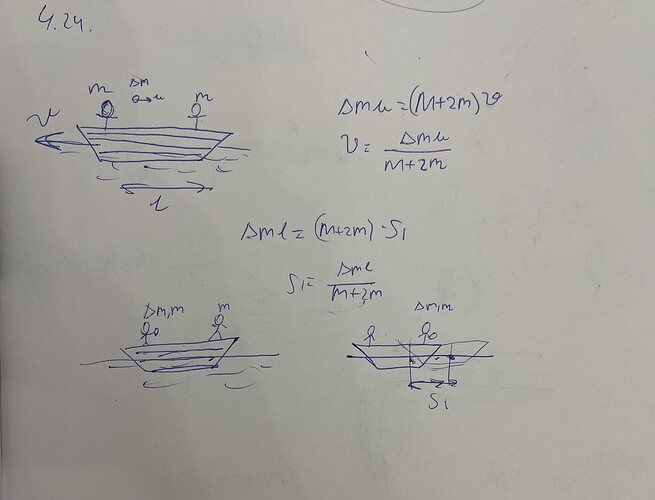 4.24.
m Δm m
u
v
l
Δmu = (M+2m)v
v = Δmu / M+2m
Δml = (M+2m)·S₁
S₁ = Δml / M+2m
Δm,m m
Δm,m
S₁